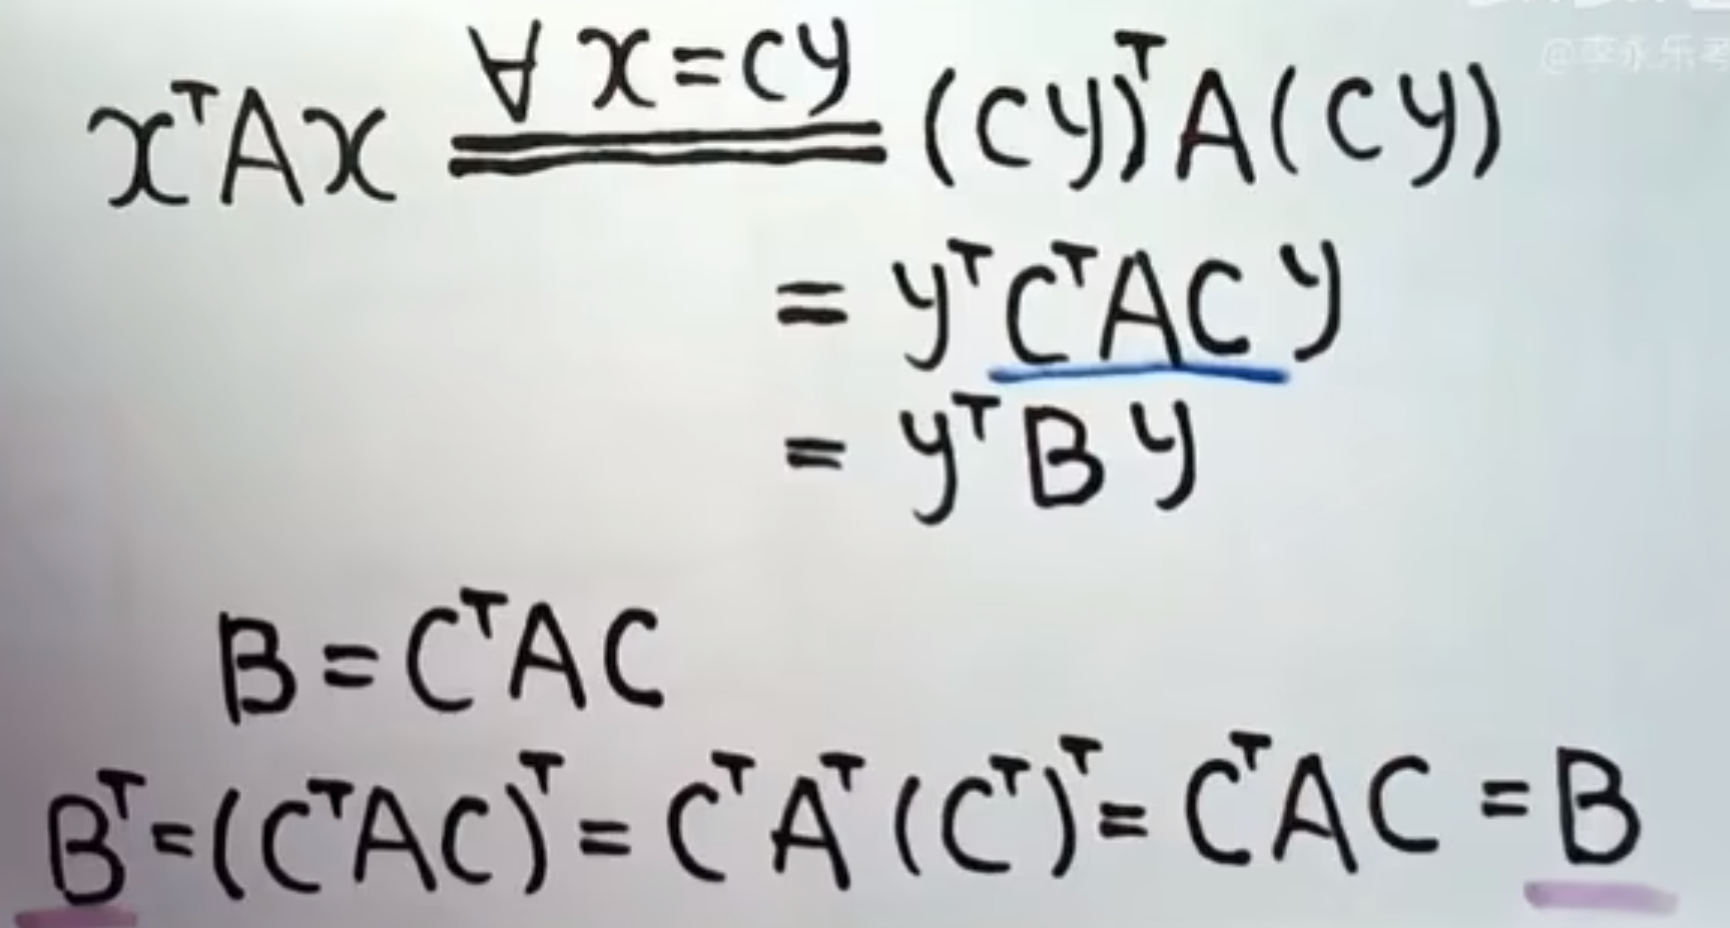 @李永乐考
xᵀAx ∀ x=Cy (Cy)ᵀA(Cy)
= yᵀCᵀACy
= yᵀBy
B=CᵀAC
Bᵀ=(CᵀAC)ᵀ=CᵀAᵀ(Cᵀ)ᵀ=CᵀAC=B